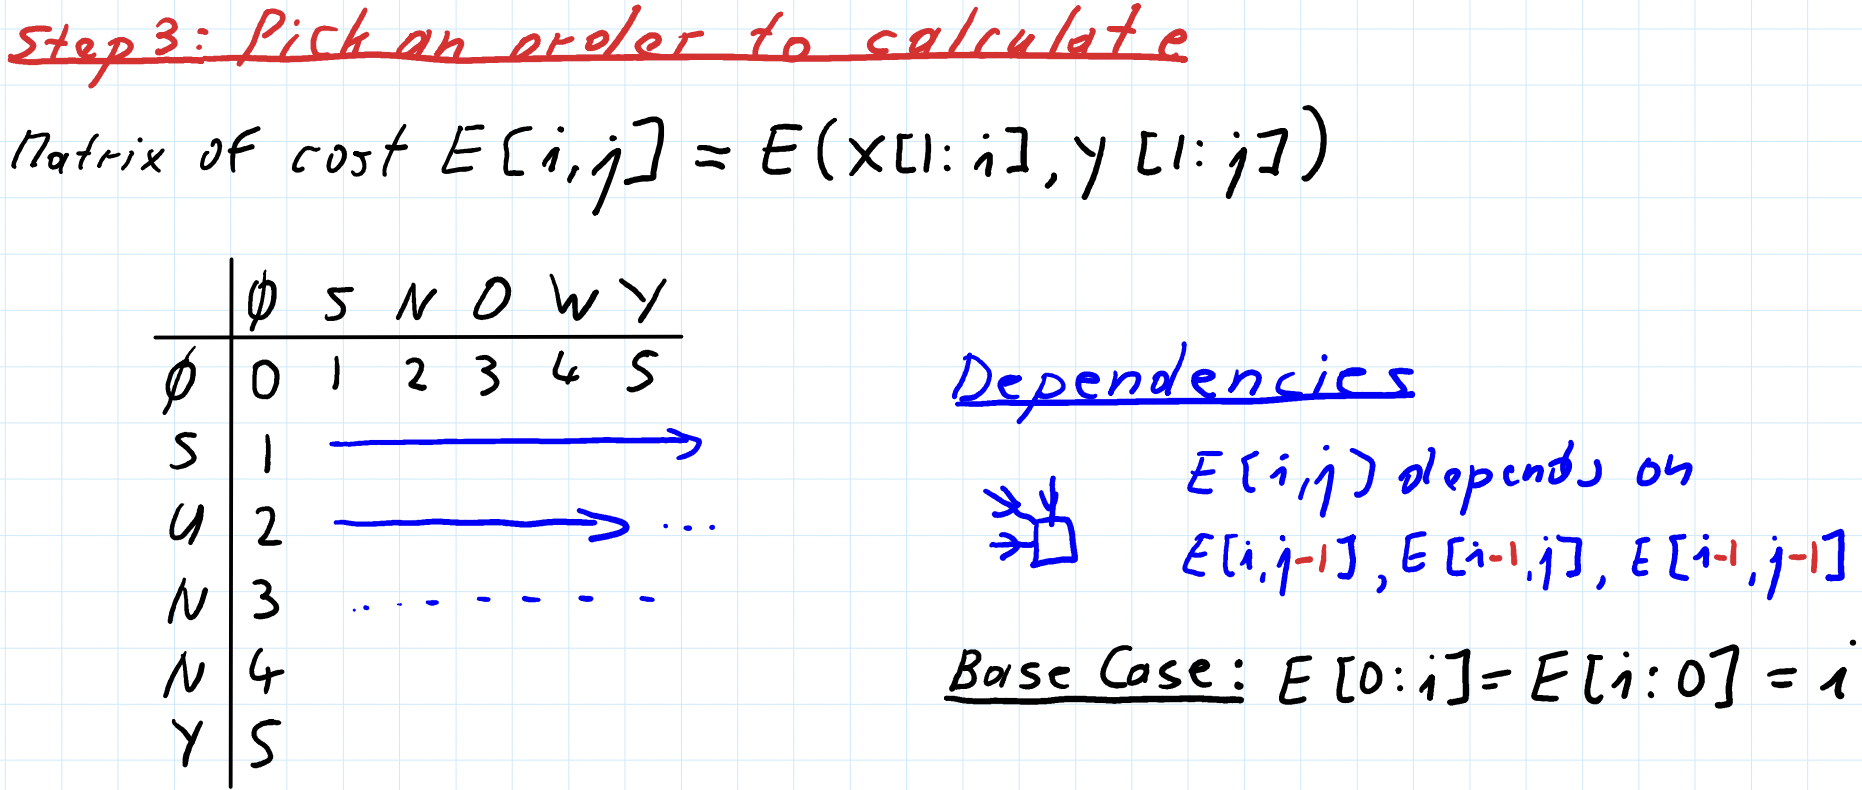 Step 3: Pick an order to calculate
Matrix of cost E[i,j] = E(X[1:i], Y[1:j])
∅ S N O W Y
∅ 0 1 2 3 4 5
S 1
U 2 ...
N 3
N 4
Y 5
Dependencies
E[i,j] depends on
E[i,j-1], E[i-1,j], E[i-1,j-1]
Base Case: E[0:i] = E[i:0] = i